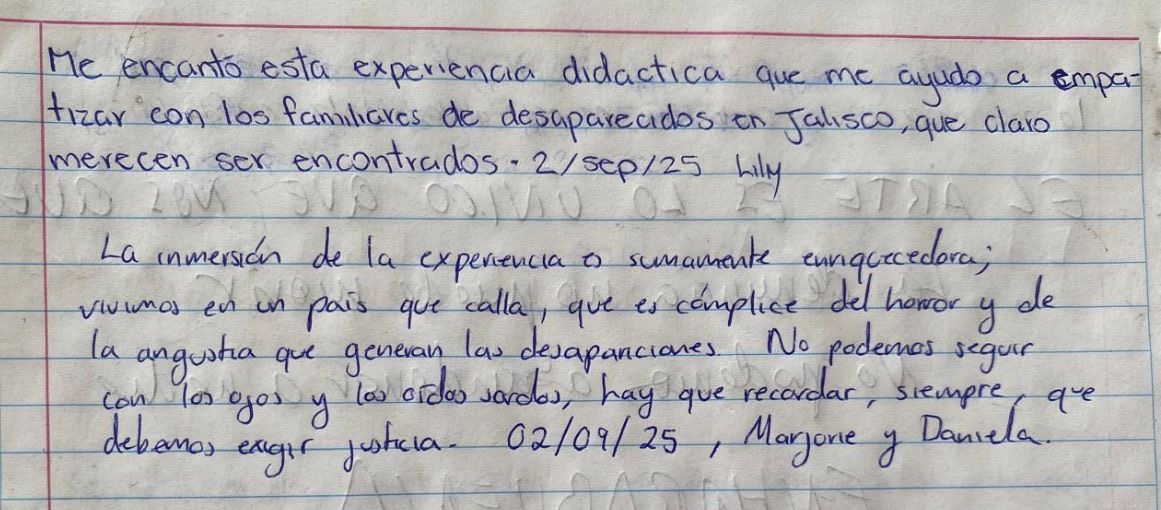 Me encantó esta experiencia didactica que me ayudo a empa-
tizar con los familiares de desaparecidos en Jalisco, que claro
merecen ser encontrados. 2/sep/25 Lily
EL ARTE ES LO UNICO QUE NOS QUE
La inmersión de la experiencia es sumamente enriquecedora;
vivimos en un país que calla, que es cómplice del horror y de
la angustia que generan las desapariciones. No podemos seguir
con los ojos y los oídos sordos, hay que recordar, siempre, que
debemos exigir justicia. 02/09/25, Marjorie y Daniela.